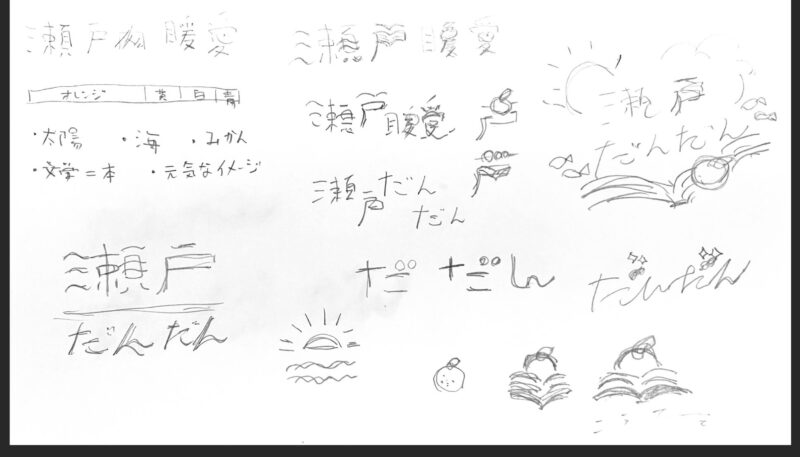 瀬戸 暖愛
オレンジ 黄 白 青
・太陽 ・海 ・みかん
・文学=本 ・元気なイメージ
瀬戸
だんだん
瀬戸 暖愛
瀬戸暖愛
瀬戸だん
だん
だ だん
瀬戸
だんだん
だんだん